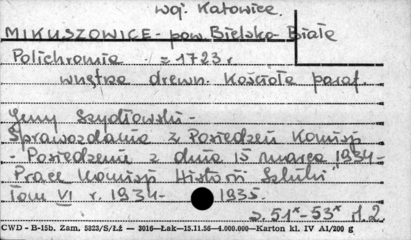 woj. Katowice.
MIKUSZOWICE - pow. Bielsko-Biała
Polichromia z 1723 r.
wnętrze drewn. Kościoła paraf.
Jerzy Szydłowski -
Sprawozdania z Posiedzeń Komisji
- Posiedzenie z dnia 15 marca 1934 -
Prace Komisji Historii Sztuki"
Tom VI r. 1934 - 1935.
s. 51*-53* il. 2
CWD - B-15b. Zam. 5823/S/ŁŻ — 3016—Łak—15.11.56—4.000.000—Karton kl. IV A1/200 g